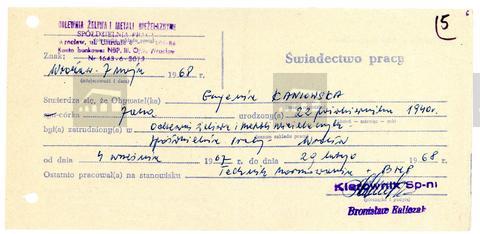 5
ODLEWNIA ŻELIWA I METALI NIEŻELAZNYCH
SPÓŁDZIELNIA PRACY
Wrocław, ul.
Konto bankowe: NBP, III. O/M. Wrocław
Nr 1645-6-3075
Znak:
Świadectwo pracy
Wrocław, 7 maja 1968 r.
(miejscowość i data)
Stwierdza się, że Obywatel(ka) Eugenia KANIOWSKA
córka Jana urodzony(a) 22 października 1940 r.
był(a) zatrudniony(a) w Odlewni żeliwa i metali nieżelaznych
Spółdzielnia Pracy Wrocław
od dnia 4 września 1967 r. do dnia 29 lutego 1968 r.
Ostatnio pracował(a) na stanowisku Technik normowania + BHP
Kierownik Sp-ni
Bronisław